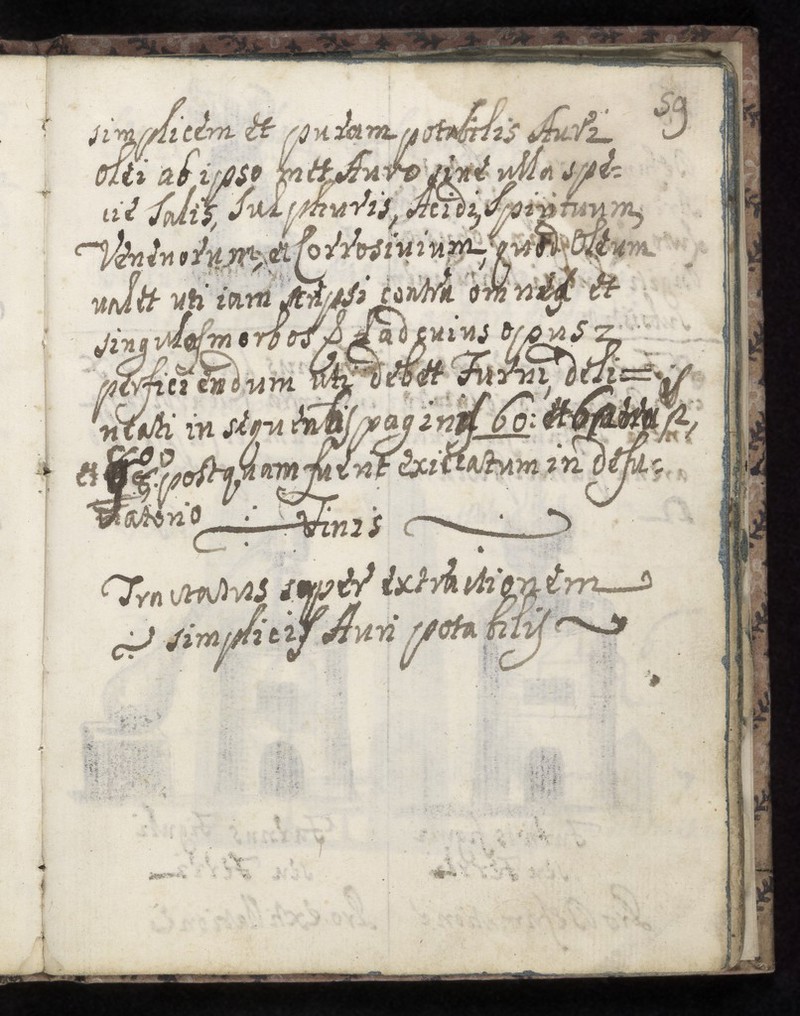 59
simplicem et puram potabilis Auri
Olei ab ipso met Auro sine ulla spe=
cie Salis, Sulphuris, Acidi, Spirituum,
Venenorum, et Corrosivium, quod Oleum
valet uti iam scripsi contra omnes et
singulos morbos ad cuius opus
perficiendum uti debet Furni, deli=
neati in sequentis paginis 60: et
et postquam fuerit exictatum in defu=
matorio
Finis
Tractatus super extractionem
simplicis Auri potabilis
Furnus figuli
seu Terra
Pro extillatione